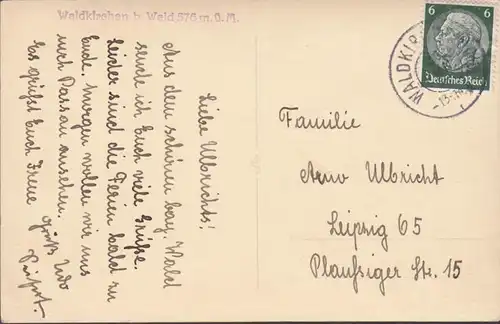 Waldkirchen b Wald, 576 m. ü. M.
Liebe Ulbrichts!
Aus dem schönen bay. Wald
sende ich Euch viele Grüße.
Leider sind die Ferien bald zu
Ende. Morgen wollen wir uns
noch Passau ansehen.
Es grüßt Euch Irene
Gruß Udo
6 6
Deutsches Reich
WALDKIR
Familie
Arno Ulbricht
Leipzig 65
Plaußiger Str. 15